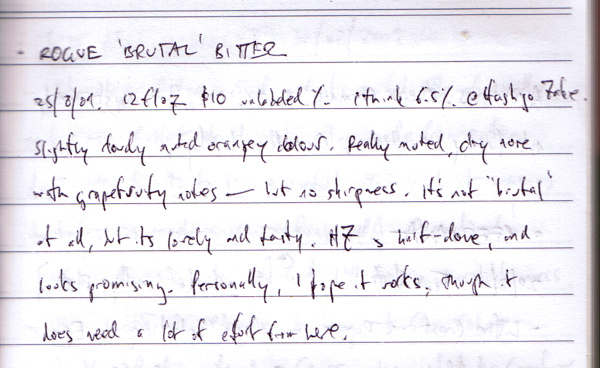 · ROGUE 'BRUTAL' BITTER
25/2/09. 12floz $10 unlabeled %. I think 6.5%. @Hashigo Zake.
Slightly cloudy muted orangey colour. Really muted, dry nose
with grapefruity notes — but no sharpness. It's not "brutal"
at all, but its lovely and tasty. HZ is half-done, and
looks promising. Personally, I hope it rocks, though it
does need a lot of effort from here.